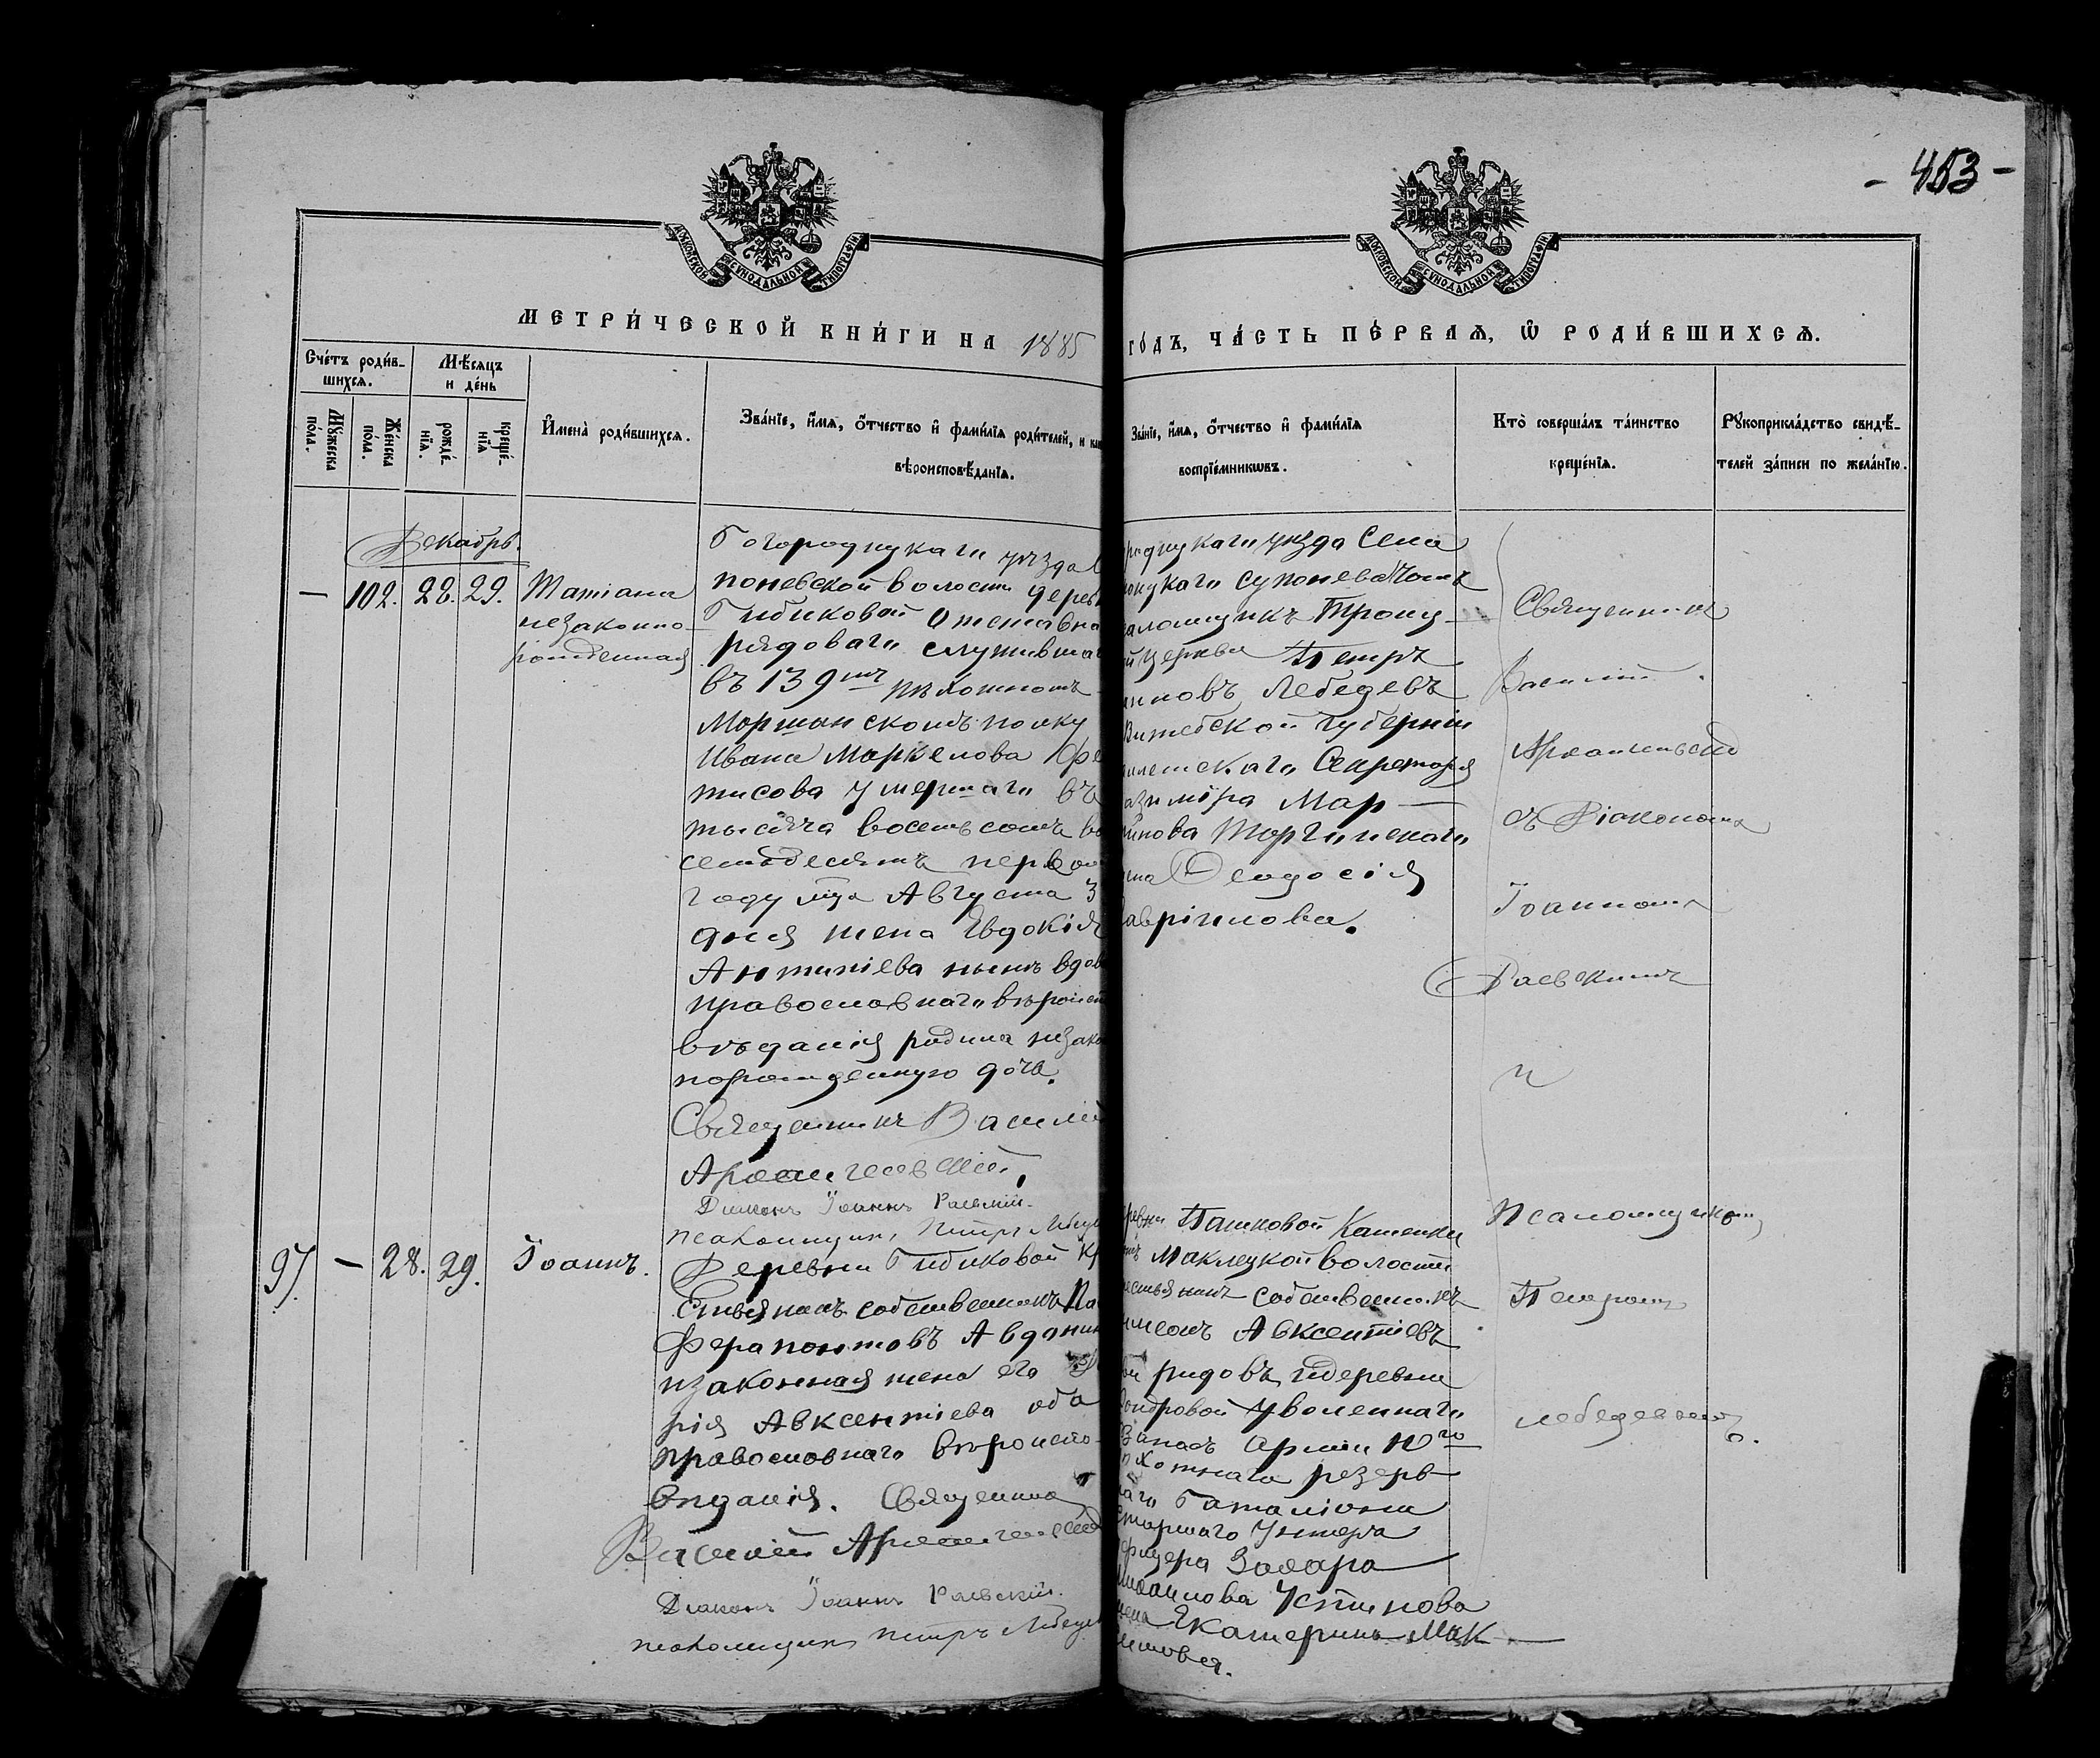 - 453 -
МОСКОВСКОЙ СУНОДАЛЬНОЙ ТИПОГРАФІИ
МОСКОВСКОЙ СУНОДАЛЬНОЙ ТИПОГРАФІИ
МЕТРИ́ЧЕСКОЙ КНИ́ГИ НА 1885
ГО́ДЪ, ЧА́СТЬ ПЕ́РВАѦ, Ѡ РОДИ́ВШИХСѦ.
Сче́тъ роди́в-
шихсѧ.
Мѣ́сѧцъ
и де́нь
Мꙋ́жеска по́ла.
Же́нска по́ла.
рожде́-
нїѧ.
креще́-
нїѧ
И҆мена̀ роди́вшихсѧ.
Зва́нїе, и҆́мѧ, о҆́тчество и҆ фами́лїѧ роди́телей, и
вѣроисповѣ́данїѧ.
Зва́нїе, и҆́мѧ, о҆́тчество и҆ фами́лїѧ
воспрїе́мникѡвъ.
Кто̀ соверша́лъ та́инство
креще́нїѧ.
Рꙋкоприкла́дство свидѣ́-
телей за́писи по жела́нїю.
Декабрь.
— 102. 28. 29.
Татіана
незаконно-
рожденная
Богородицкаго уѣзда
поневской волости дерев
Гибиковой
рядоваго служивша
въ 139мъ пѣхотномъ
Моршанскомъ полку
Ивана Маркелова
тисова умершаго въ
тысяча восемьсотъ во
семьдесятъ первом
году мца Августа 3
дня жена Евдокія
Антипіева нынѣ вдов
православнаго вѣроисп
вѣданія родила незако
норожденную дочь.
Священникъ Василій
Архангельскій,
Діаконъ Іоаннъ Раевскій.
псаломщикъ Петръ Лебед
родицкаго уѣзда Села
Супонева
аломщикъ Троиц-
й церкви Петръ
ановъ Лебедевъ
Витебской губерніи
Секретаря
азиміра Мар—
инова
ена Ѳеодосія
авріилова.
Священникъ
Василій
Архангельскій
съ Діакономъ
Іоанномъ
Раевскимъ
и
Псаломщикомъ
Петромъ
Лебедевымъ.
97. — 28. 29.
Іоаннъ.
Деревни Гибиковой Кр
стьянинъ собственникъ Па
Ферапонтовъ Авдонин
и законная жена его
рія Авксентіева оба
православнаго вѣроиспо-
вѣданія. Священникъ
Василій Архангельскій
Діаконъ Іоаннъ Раевскій.
псаломщикъ Петръ Лебедев
ревни Пашковой Каменки
Маклецкой волости
естьянинъ собственникъ
имеонъ Авксентіевъ
и деревни
Уволеннаго
запасъ Арміи
хотнаго резерв-
наго баталіона
старшаго Унтеръ
фицера Захара
ихаилова Устинова
жена Екатерина Мак—
имова.